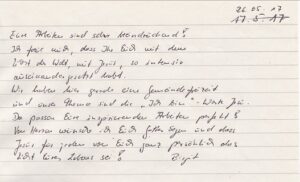 26.05.17
17.5.17
Eure Arbeiten sind sehr beeindruckend!
Ich freue mich, dass Ihr Euch mit dem
Licht der Welt, mit Jesus, so intensiv
auseinandergesetzt habt.
Wir haben hier gerade eine Gemeindefreizeit
und unser Thema sind die "Ich bin"-Worte Jesu.
Da passen Eure inspirierenden Arbeiten perfekt!
Von Herzen wünsche ich Euch Gottes Segen und dass
Jesus für jeden von Euch ganz persönlich das
Licht Eures Lebens sei! Birgit